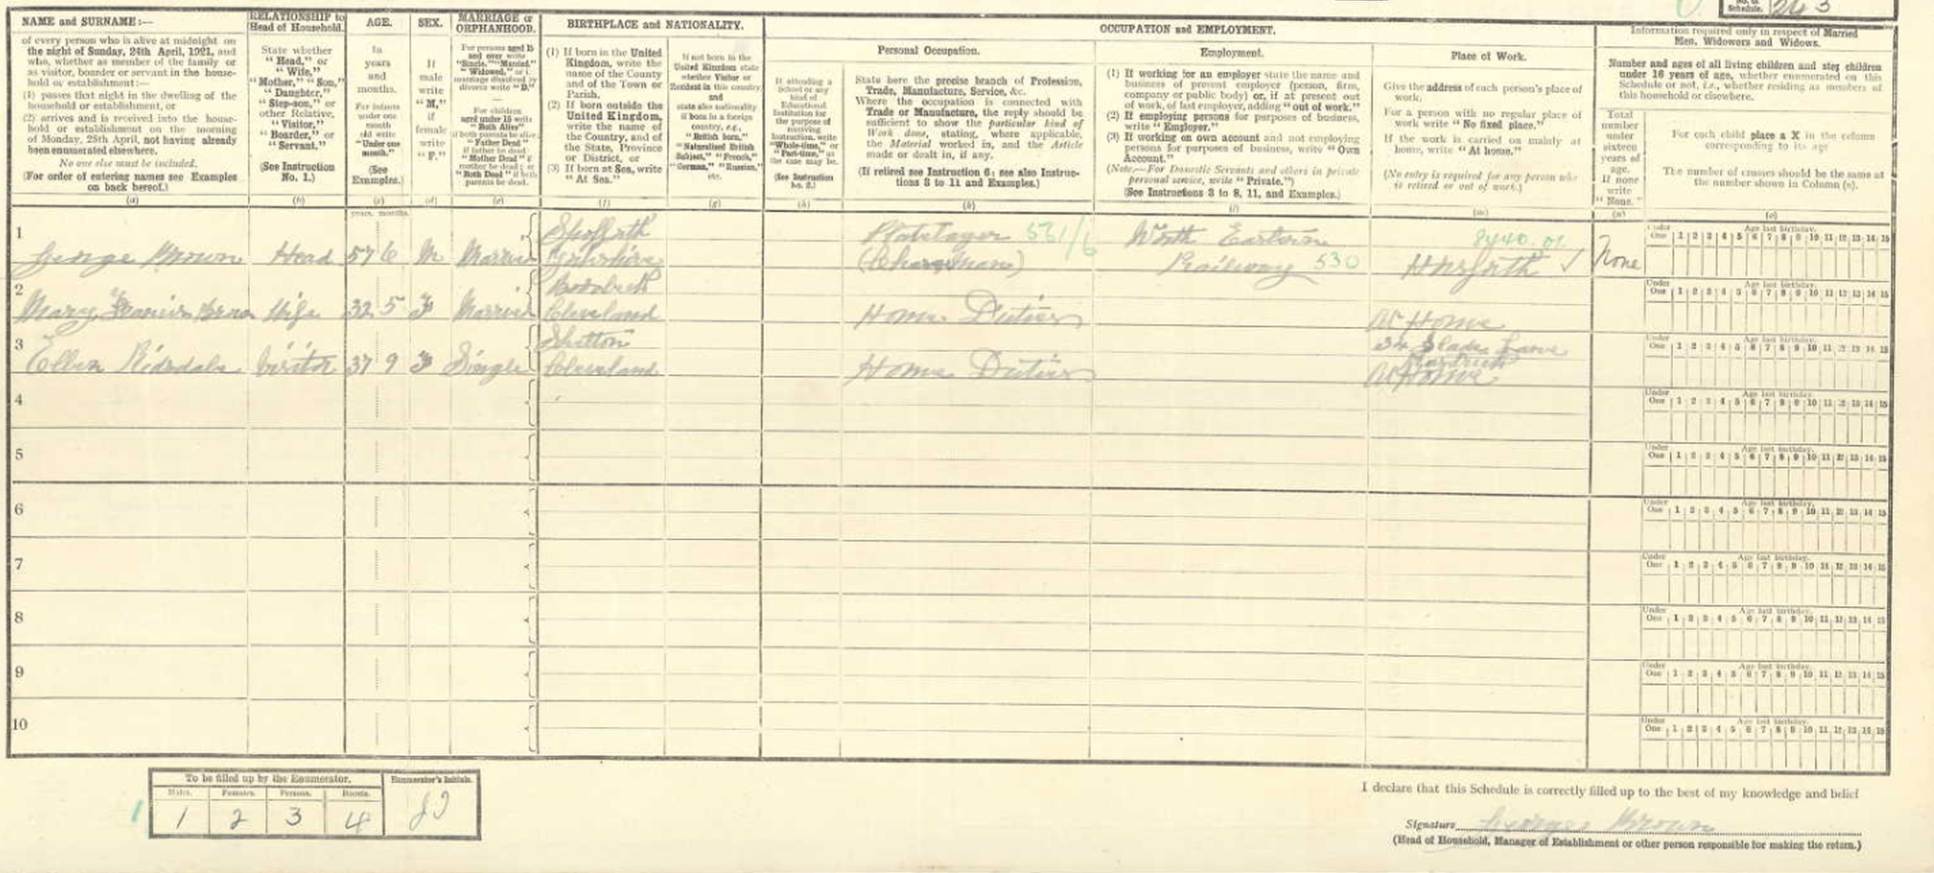 No. of Schedule. 243
NAME and SURNAME:—
of every person who is alive at midnight on
the night of Sunday, 24th April, 1921, and
who, whether as member of the family or
as visitor, boarder or servant in the house-
hold or establishment:—
(1) passes that night in the dwelling of the
household or establishment, or
(2) arrives and is received into the house-
hold or establishment on the morning
of Monday, 25th April, not having already
been enumerated elsewhere.
No one else must be included.
(For order of entering names see Examples
on back hereof.)
(a)
RELATIONSHIP to
Head of Household.
State whether
"Head," or
"Wife,"
"Mother," "Son,"
"Daughter,"
"Step-son," or
other Relative,
"Visitor,"
"Boarder," or
"Servant."
(See Instruction
No. 1.)
(b)
AGE.
In
years
and
months.
For infants
under one
month
old write
"Under one
month."
(See
Examples.)
(c)
SEX.
If
male
write
"M,"
if
female
write
"F."
(d)
MARRIAGE or
ORPHANHOOD.
For persons aged 15
and over write
"Single," "Married,"
"Widowed," or if
marriage dissolved by
divorce write "D."
For children
aged under 15 write
"Both Alive"
if both parents be alive,
"Father Dead"
if father be dead
"Mother Dead" if
mother be dead; or
"Both Dead" if both
parents be dead.
(e)
BIRTHPLACE and NATIONALITY.
(1) If born in the United
Kingdom, write the
name of the County
and of the Town or
Parish.
(2) If born outside the
United Kingdom,
write the name of
the Country, and of
the State, Province
or District, or
(3) If born at Sea, write
"At Sea."
(f)
If not born in the
United Kingdom state
whether Visitor or
Resident in this country
and
state also nationality
if born in a foreign
country, e.g.,
"British born,"
"Naturalised British
Subject," "French,"
"German," "Russian,"
etc.
(g)
OCCUPATION and EMPLOYMENT.
If attending a
School or any
kind of
Educational
Institution for
the purpose of
receiving
instruction, write
"Whole-time," or
"Part-time," as
the case may be.
(See Instruction
No. 2.)
(h)
Personal Occupation.
State here the precise branch of Profession,
Trade, Manufacture, Service, &c.
Where the occupation is connected with
Trade or Manufacture, the reply should be
sufficient to show the particular kind of
Work done, stating, where applicable,
the Material worked in, and the Article
made or dealt in, if any.
(If retired see Instruction 6; see also Instruc-
tions 3 to 11 and Examples.)
(k)
Employment.
(1) If working for an employer state the name and
business of present employer (person, firm,
company or public body) or, if at present out
of work, of last employer, adding "out of work."
(2) If employing persons for purposes of business,
write "Employer."
(3) If working on own account and not employing
persons for purposes of business, write "Own
Account."
(Note.—For Domestic Servants and others in private
personal service, write "Private.")
(See Instructions 3 to 8, 11, and Examples.)
(l)
Place of Work.
Give the address of each person's place of
work.
For a person with no regular place of
work write "No fixed place."
If the work is carried on mainly at
home, write "At home."
(No entry is required for any person who
is retired or out of work.)
(m)
Information required only in respect of Married
Men, Widowers and Widows.
Number and ages of all living children and step children
under 16 years of age, whether enumerated on this
Schedule or not, i.e., whether residing as members of
this household or elsewhere.
Total
number
under
sixteen
years of
age.
If none
write
"None."
(n)
For each child place a X in the column
corresponding to its age
The number of crosses should be the same as
the number shown in Column (n).
(o)
years. months.
1 George Brown Head 57 6 M Married Spofforth Yorkshire Platelayer 561/6 (Chargeman) North Eastern Railway 530 Horsforth None
2 Mary Francis Brown Wife 32 5 F Married Cleveland Home Duties At Home
3 Ellen Ridsdale Visitor 37 9 F Single Cleveland Home Duties 34 Slade Lane At Home
4
5
6
7
8
9
10
Under One Age last birthday. 1 2 3 4 5 6 7 8 9 10 11 12 13 14 15
Under One Age last birthday. 1 2 3 4 5 6 7 8 9 10 11 12 13 14 15
Under One Age last birthday. 1 2 3 4 5 6 7 8 9 10 11 12 13 14 15
Under One Age last birthday. 1 2 3 4 5 6 7 8 9 10 11 12 13 14 15
Under One Age last birthday. 1 2 3 4 5 6 7 8 9 10 11 12 13 14 15
Under One Age last birthday. 1 2 3 4 5 6 7 8 9 10 11 12 13 14 15
Under One Age last birthday. 1 2 3 4 5 6 7 8 9 10 11 12 13 14 15
Under One Age last birthday. 1 2 3 4 5 6 7 8 9 10 11 12 13 14 15
Under One Age last birthday. 1 2 3 4 5 6 7 8 9 10 11 12 13 14 15
Under One Age last birthday. 1 2 3 4 5 6 7 8 9 10 11 12 13 14 15
To be filled up by the Enumerator.
Males. Females. Persons. Rooms.
1 2 3 4
Enumerator's Initials.
I declare that this Schedule is correctly filled up to the best of my knowledge and belief
Signature George Brown
(Head of Household, Manager of Establishment or other person responsible for making the return.)